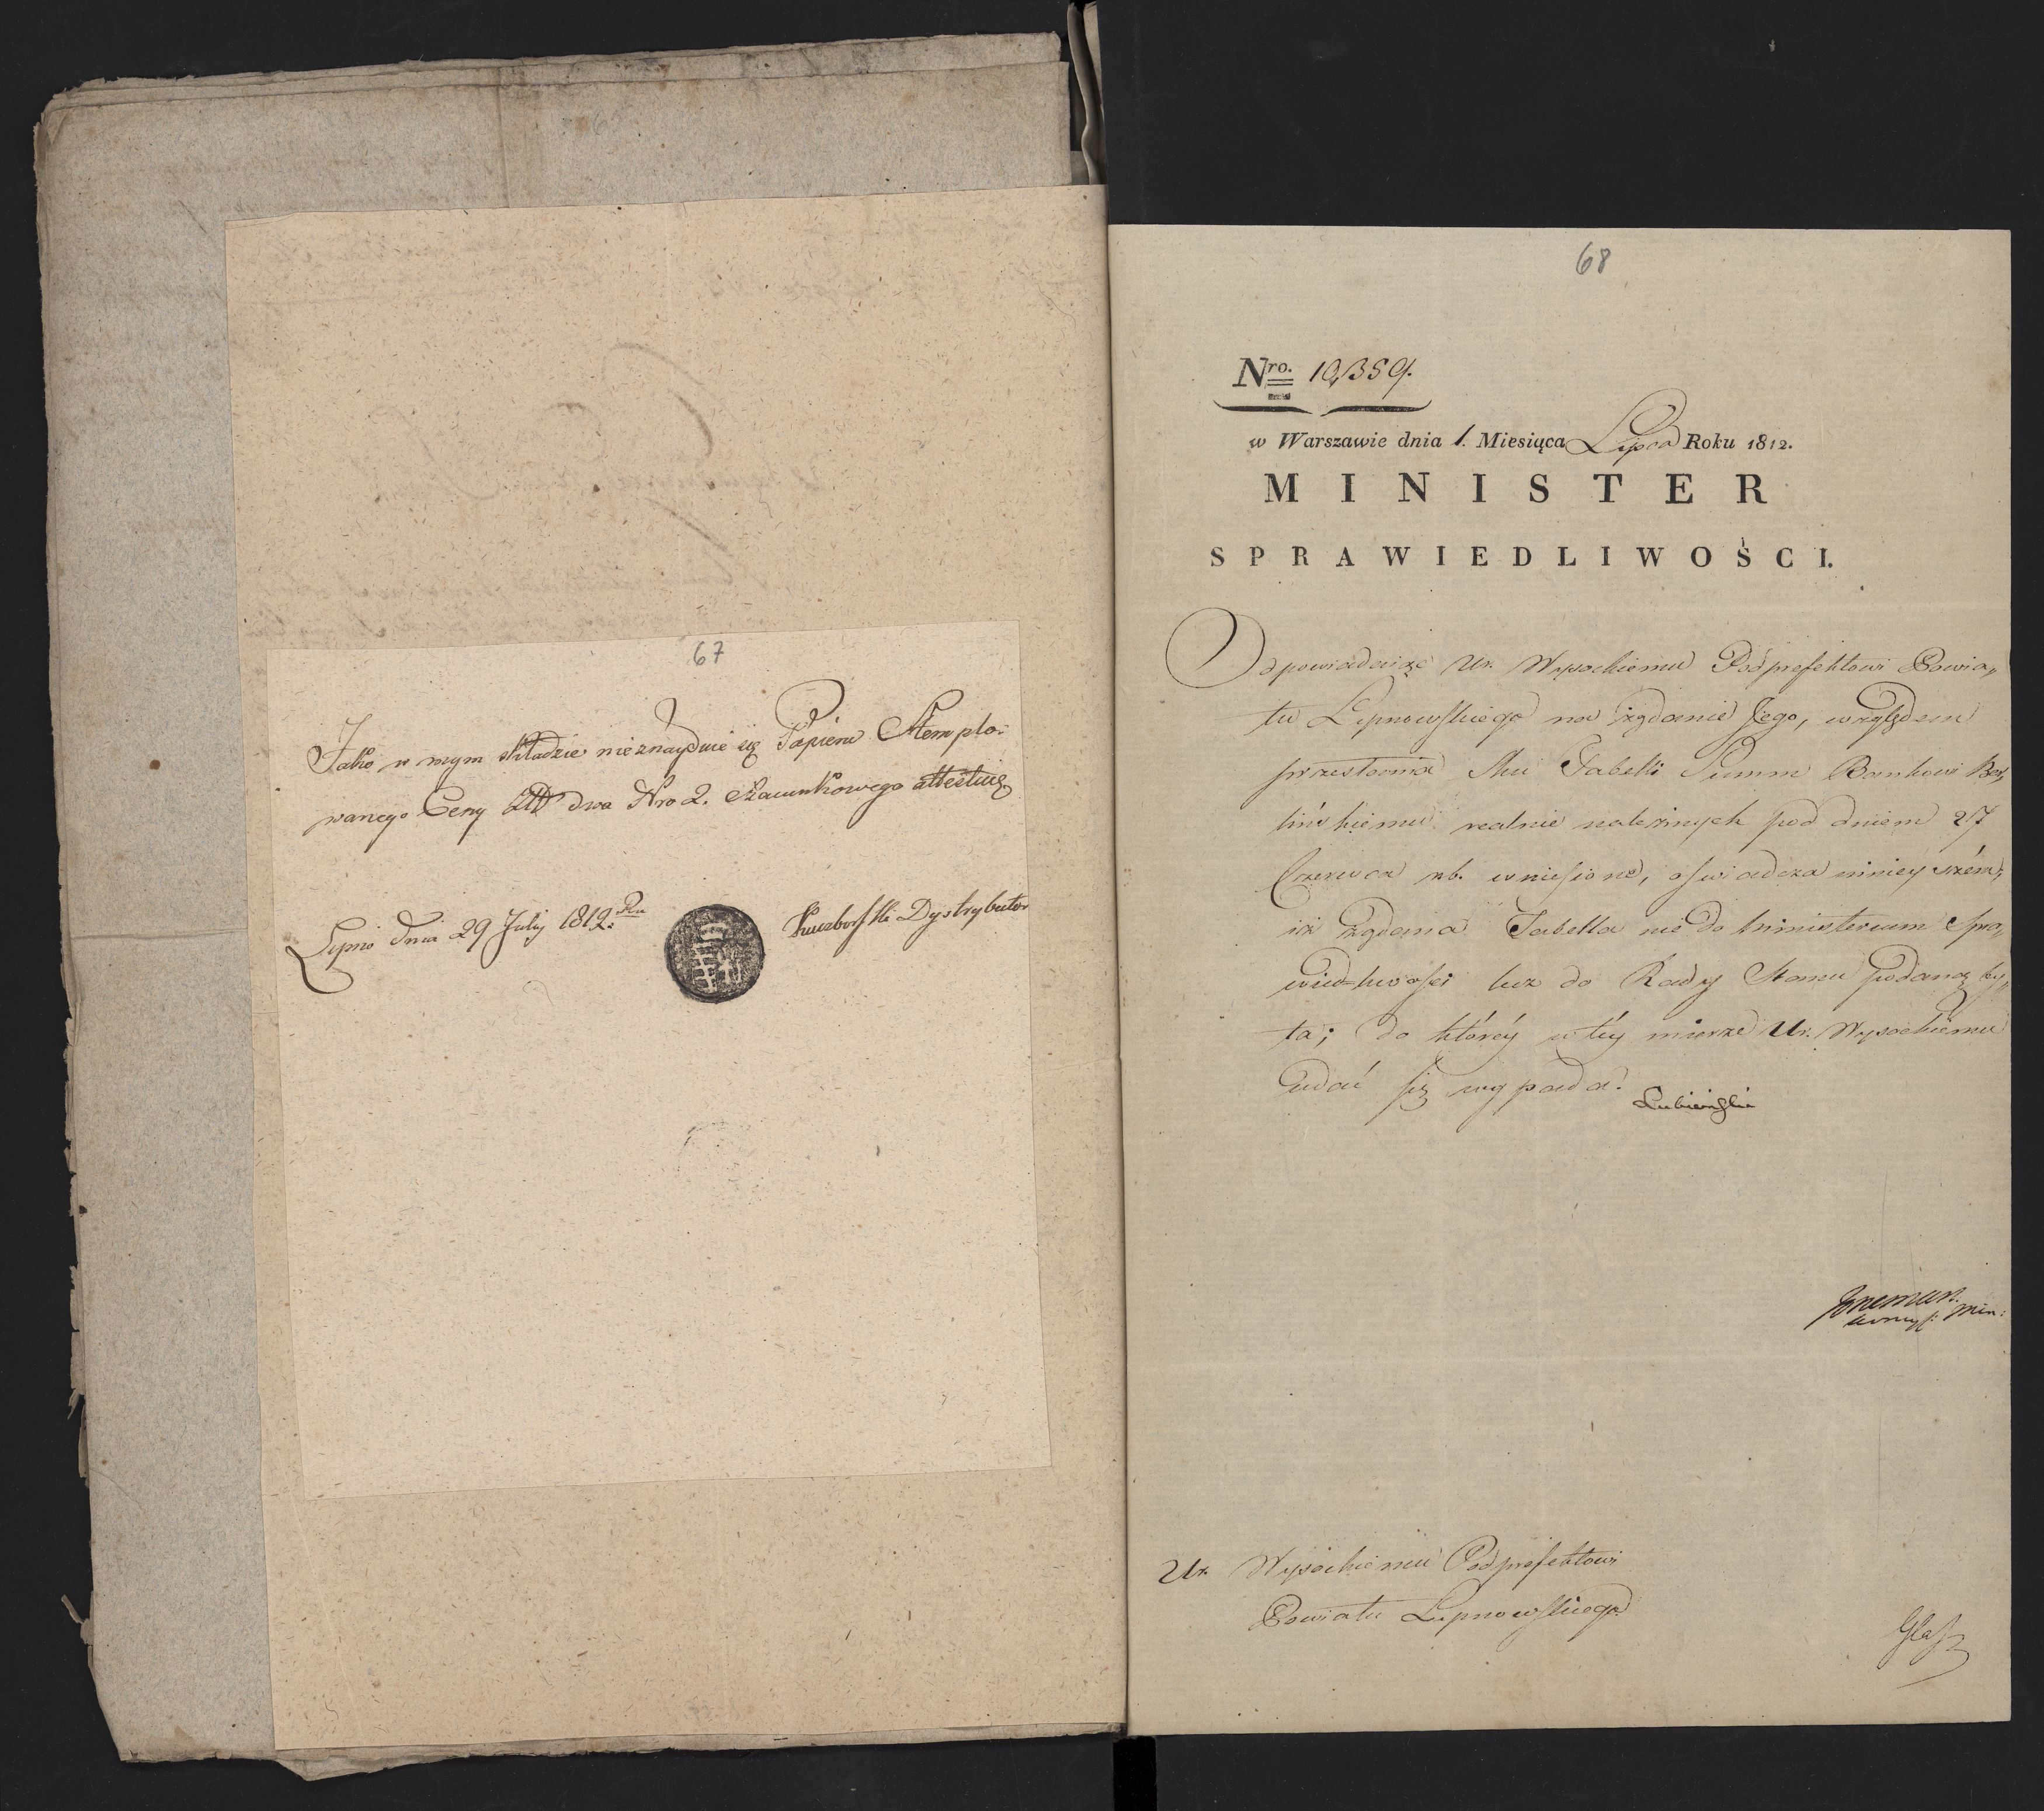 67
Jako w mym składzie nieznayduie się Papieru Stemplo-
wanego Ceny dwa Nro 2. Szacunkowego attestuię
Lipno dnia 29 July 1812. Ru
Dystrybutor
68
Nro. 10,359.
w Warszawie dnia 1. Miesiąca Lipca Roku 1812.
MINISTER
SPRAWIEDLIWOŚCI.
Odpowiadaiąc Ur. Wysockiemu Podprefektowi Powia„
tu Lipnowskiego na żądanie Jego, względem
przesłania Mu Tabelli Summ Bankowi Ber„
lińskiemu realnie należnych pod dniem 27
Czerwca rb. wniesione, oświadcza ninieyszém,
iż żądana Tabella nie do Ministerium Spra„
wiedliwości lecz do Rady Stanu podaną by„
ła; do któréy w téy mierze Ur. Wysockiemu
udać się wypada.
Łubieński
Ur. Wysockiemu Podprefektowi
Powiatu Lipnowskiego